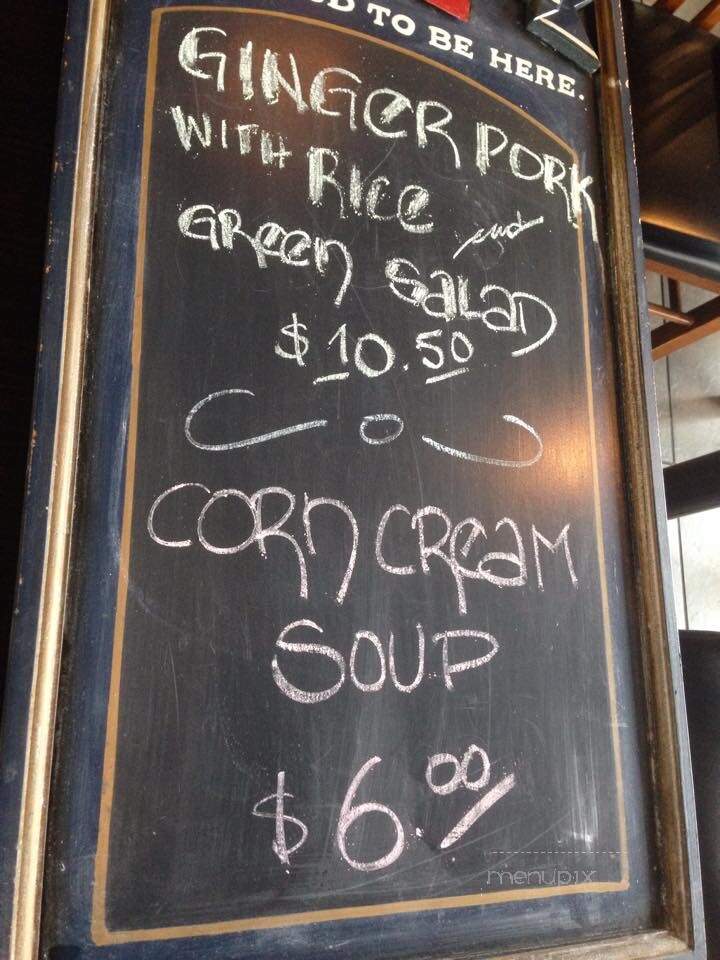 TO BE HERE.
GINGER PORK
WITH RICE
GREEN and SALAD
$10.50
CORN CREAM
SOUP
$6.00
menupix